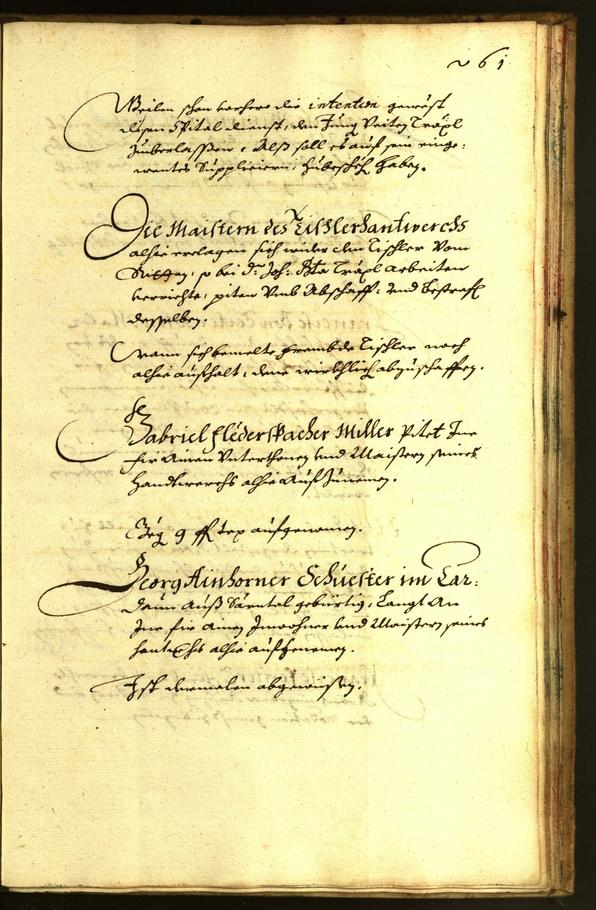 261
Weilen schon vorhero die intention gewest
disen Spital dienst, dem Jung Veiten Träxl
zuverlassen, Alß soll es auf sein einge-
wentes Suppliciern, hiebeÿ haben.
Die Maistern des Tischlerhantwerchs
alhie erclagen sich wider den Tischler vom
so bei Hr: Joh: Bta Träxl Arbeiten
verrichte, piten umb Abschaff- und bestraf
desselben.
Wann sich bemelte frembde Tischler noch
alhie aufhalt, dene würkhlich abzuschaffen.
Gabriel Flederspacher Miller pitet Ine
für ainen Unterthonen und Maistern seines
Handtwerchs alhie Aufzunemen.
Per 9 fl tax aufgenomen.
Georg Ainhorner Schuester im Car-
daun Auß Särntal gebürtig, Langt An
Ine für ainen Inwohner und Maistern seines
hantwerchs alhie aufzenemen.
Ist dermalen abgewisen.